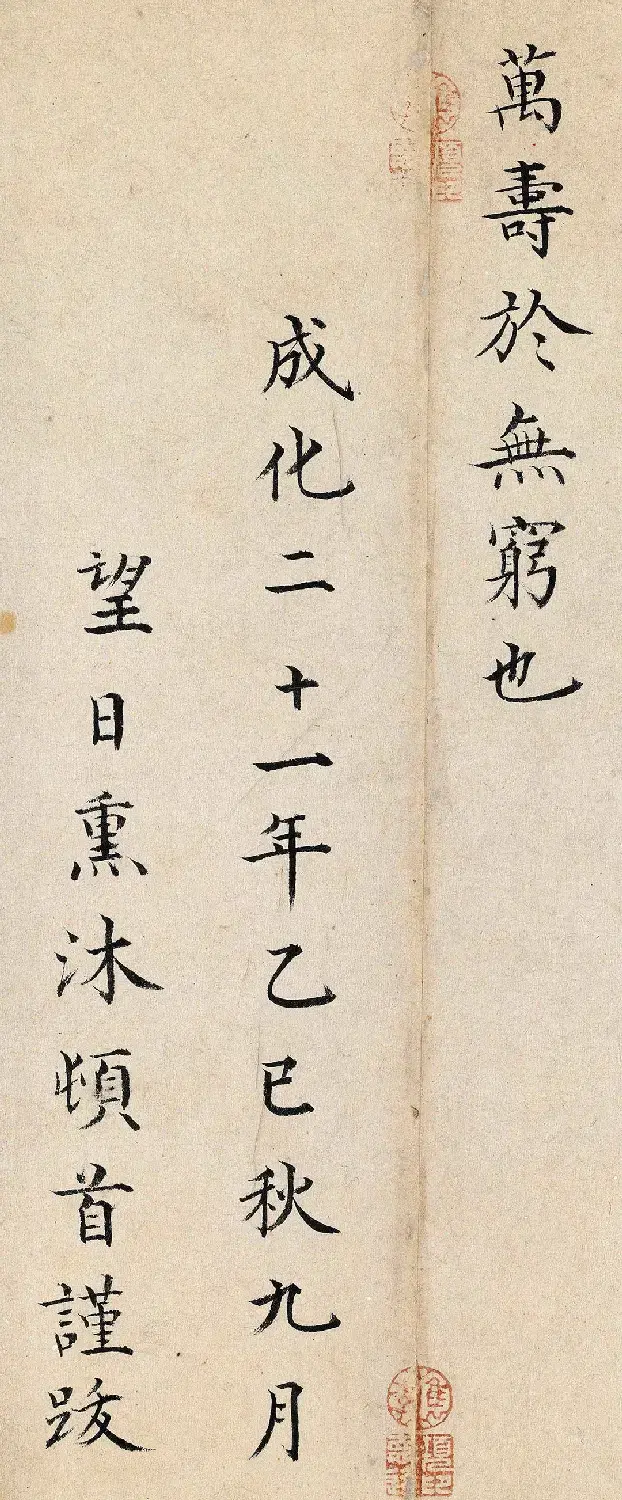 萬壽於無窮也
成化二十一年乙巳秋九月
望日熏沐頓首謹跋